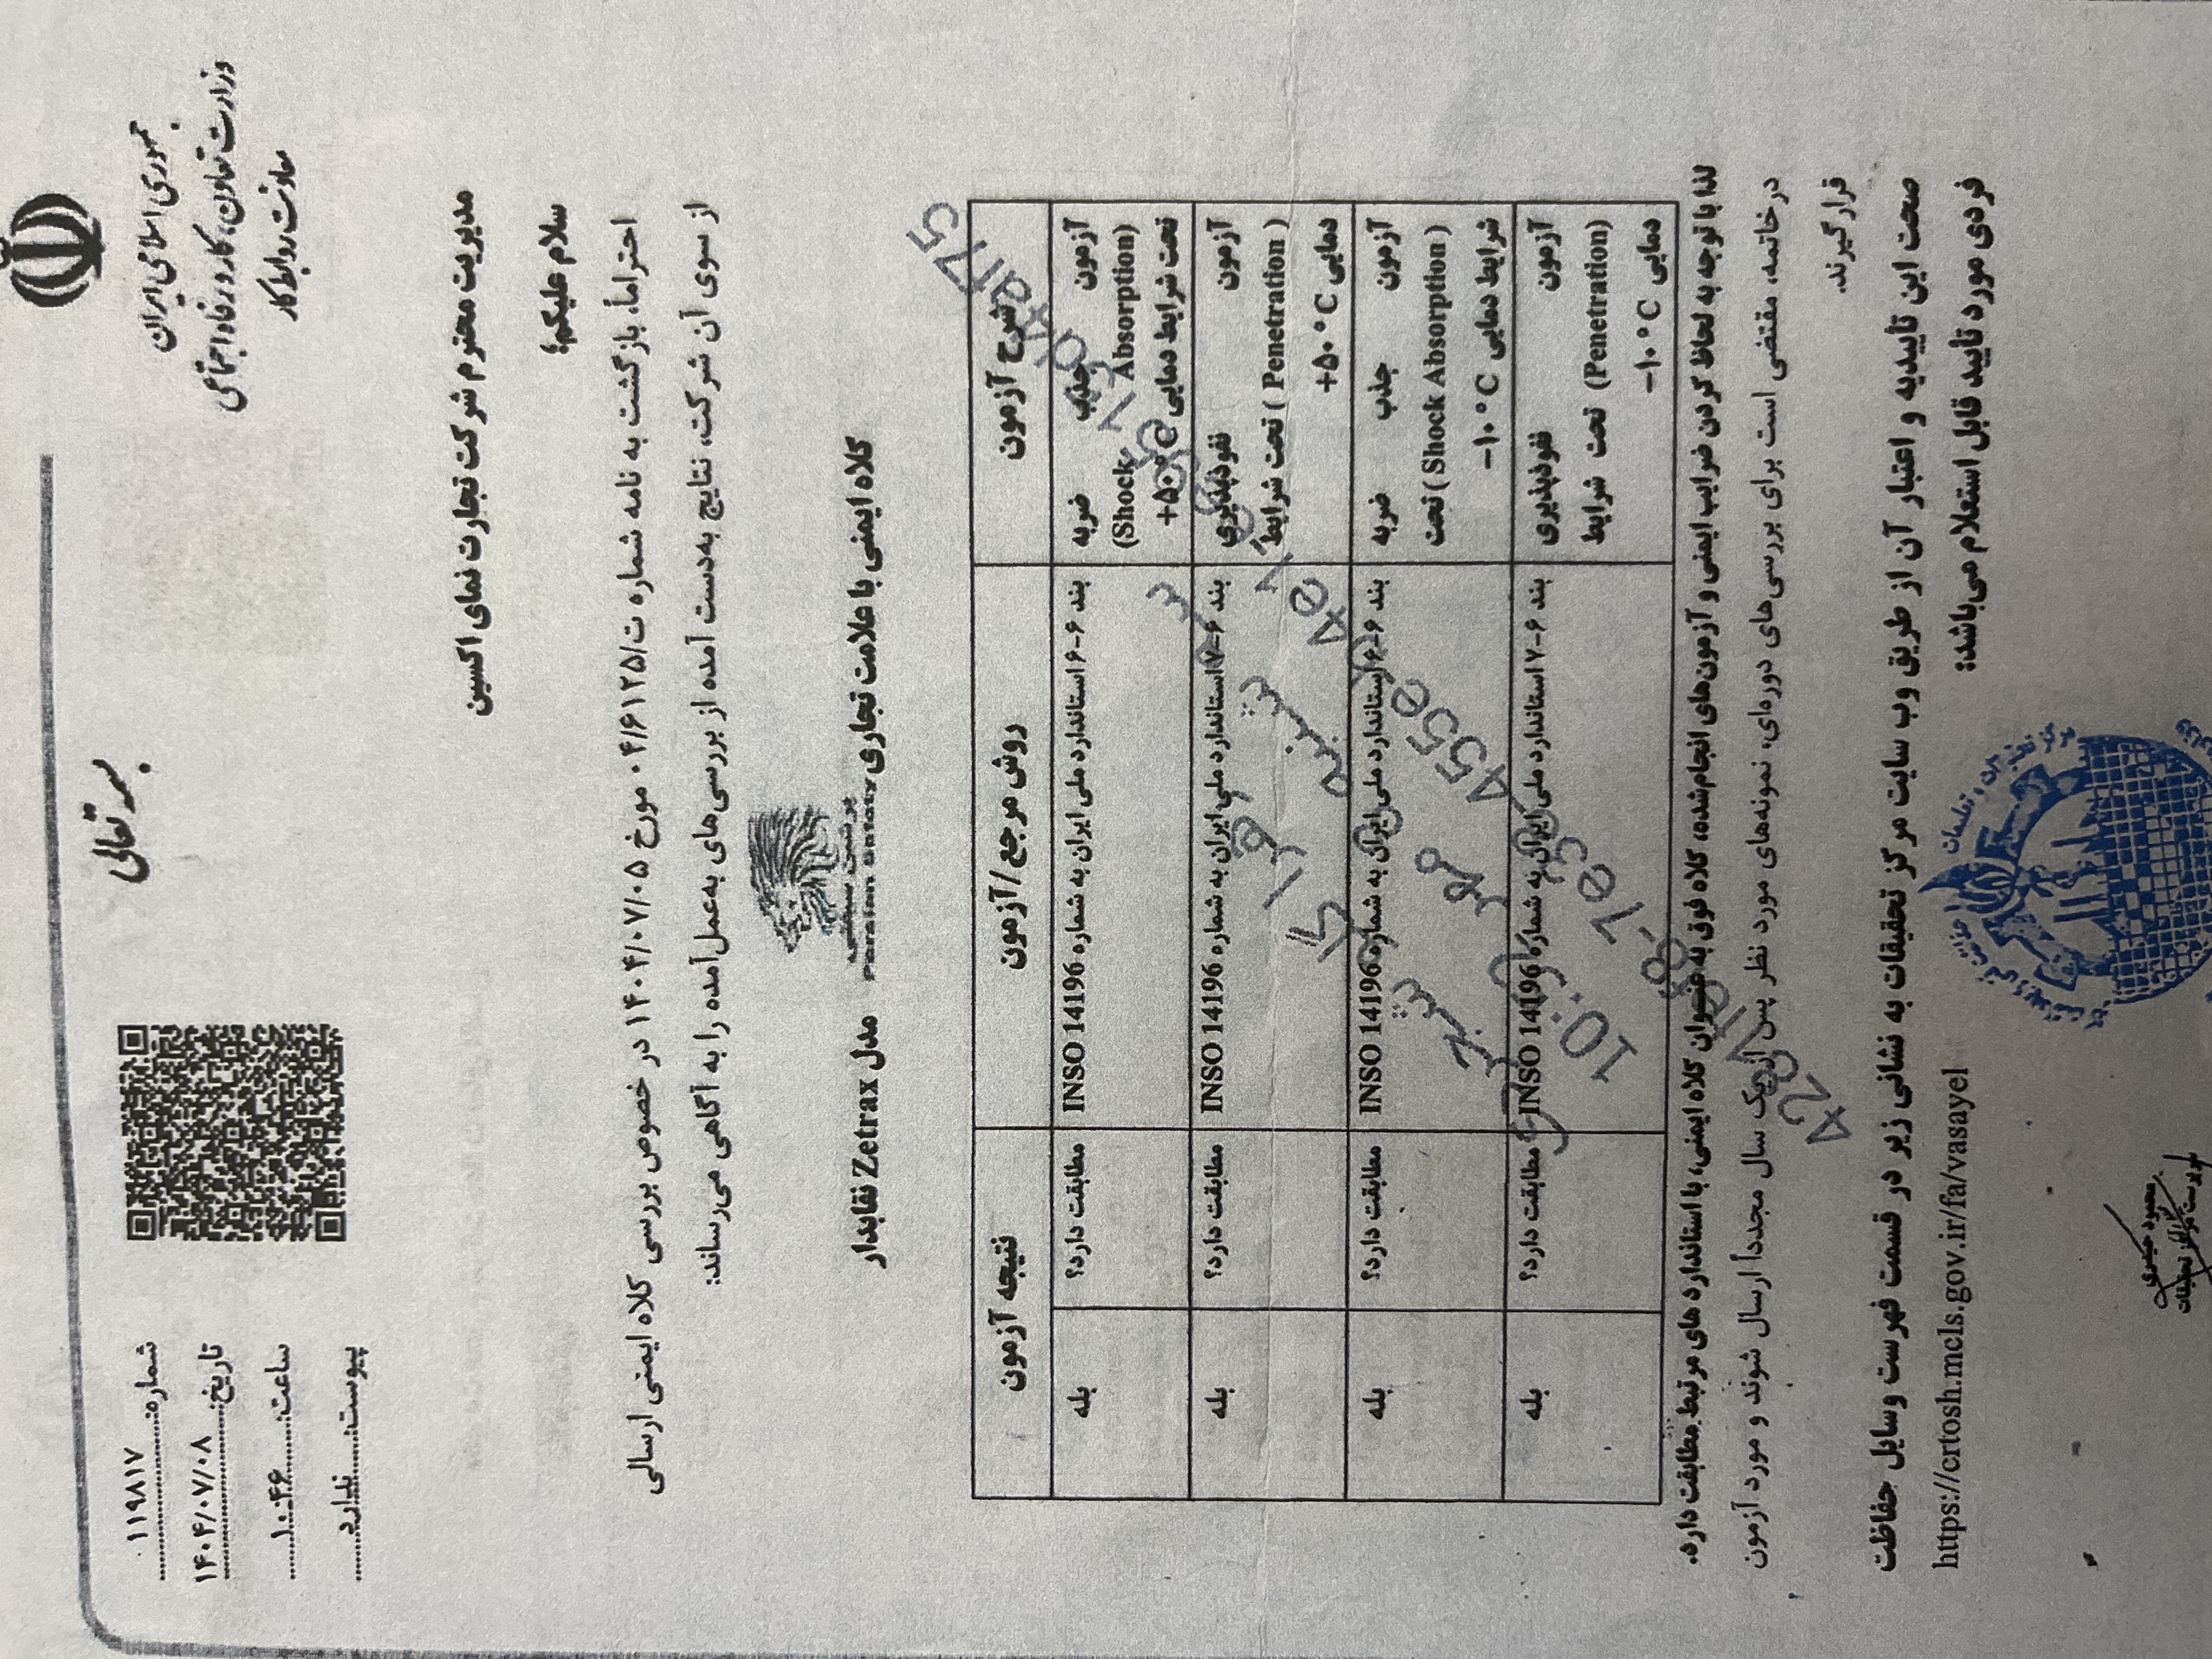 بسمه تعالی
جمهوری اسلامی ایران
وزارت تعاون، کار و رفاه اجتماعی
معاونت روابط کار
شماره: ۱۱۹۸۱۷
تاریخ: ۱۴۰۴/۰۷/۰۸
ساعت: ۱۰:۴۶
پیوست: ندارد
مدیریت محترم شرکت تجارت نمای اکسین
سلام علیکم؛
احتراماً، بازگشت به نامه شماره ت/۰۴/۶۱۲۵ مورخ ۱۴۰۴/۰۷/۰۵ در خصوص بررسی کلاه ایمنی ارسالی
از سوی آن شرکت، نتایج به‌دست آمده از بررسی‌های به‌عمل‌آمده را به آگاهی می‌رساند:
کلاه ایمنی با علامت تجاری پرشین سیفتی Persian Safety مدل Zetrax نقابدار
شرح آزمون روش مرجع/آزمون نتیجه آزمون
آزمون جذب ضربه (Shock Absorption) تحت شرایط دمایی +۵۰°C بند ۶-۶ استاندارد ملی ایران به شماره INSO 14196 مطابقت دارد؟ بله
آزمون نفوذپذیری (Penetration) تحت شرایط دمایی +۵۰°C بند ۶-۷ استاندارد ملی ایران به شماره INSO 14196 مطابقت دارد؟ بله
آزمون جذب ضربه (Shock Absorption) تحت شرایط دمایی −۱۰°C بند ۶-۶ استاندارد ملی ایران به شماره INSO 14196 مطابقت دارد؟ بله
آزمون نفوذپذیری (Penetration) تحت شرایط دمایی −۱۰°C بند ۶-۷ استاندارد ملی ایران به شماره INSO 14196 مطابقت دارد؟ بله
لذا با توجه به لحاظ کردن ضرایب ایمنی و آزمون‌های انجام‌شده، کلاه فوق به عنوان کلاه ایمنی، با استاندارد های مرتبط مطابقت دارد.
درخاتمه، مقتضی است برای بررسی‌های دوره‌ای، نمونه‌های مورد نظر پس از یک سال مجدداً ارسال شوند و مورد آزمون
قرار گیرند.
صحت این تاییدیه و اعتبار آن از طریق وب سایت مرکز تحقیقات به نشانی زیر در قسمت فهرست وسایل حفاظت
فردی مورد تأیید قابل استعلام می‌باشد:
https://crtosh.mcls.gov.ir/fa/vasayel
محمود حیدری